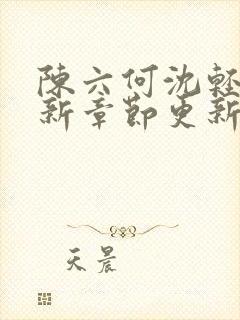 陳六何沈輕
新章節更新
天晨